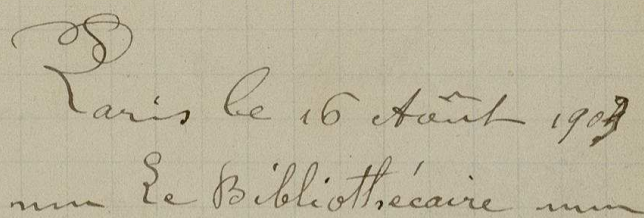 Paris le 16 Août
Le Bibliothécaire